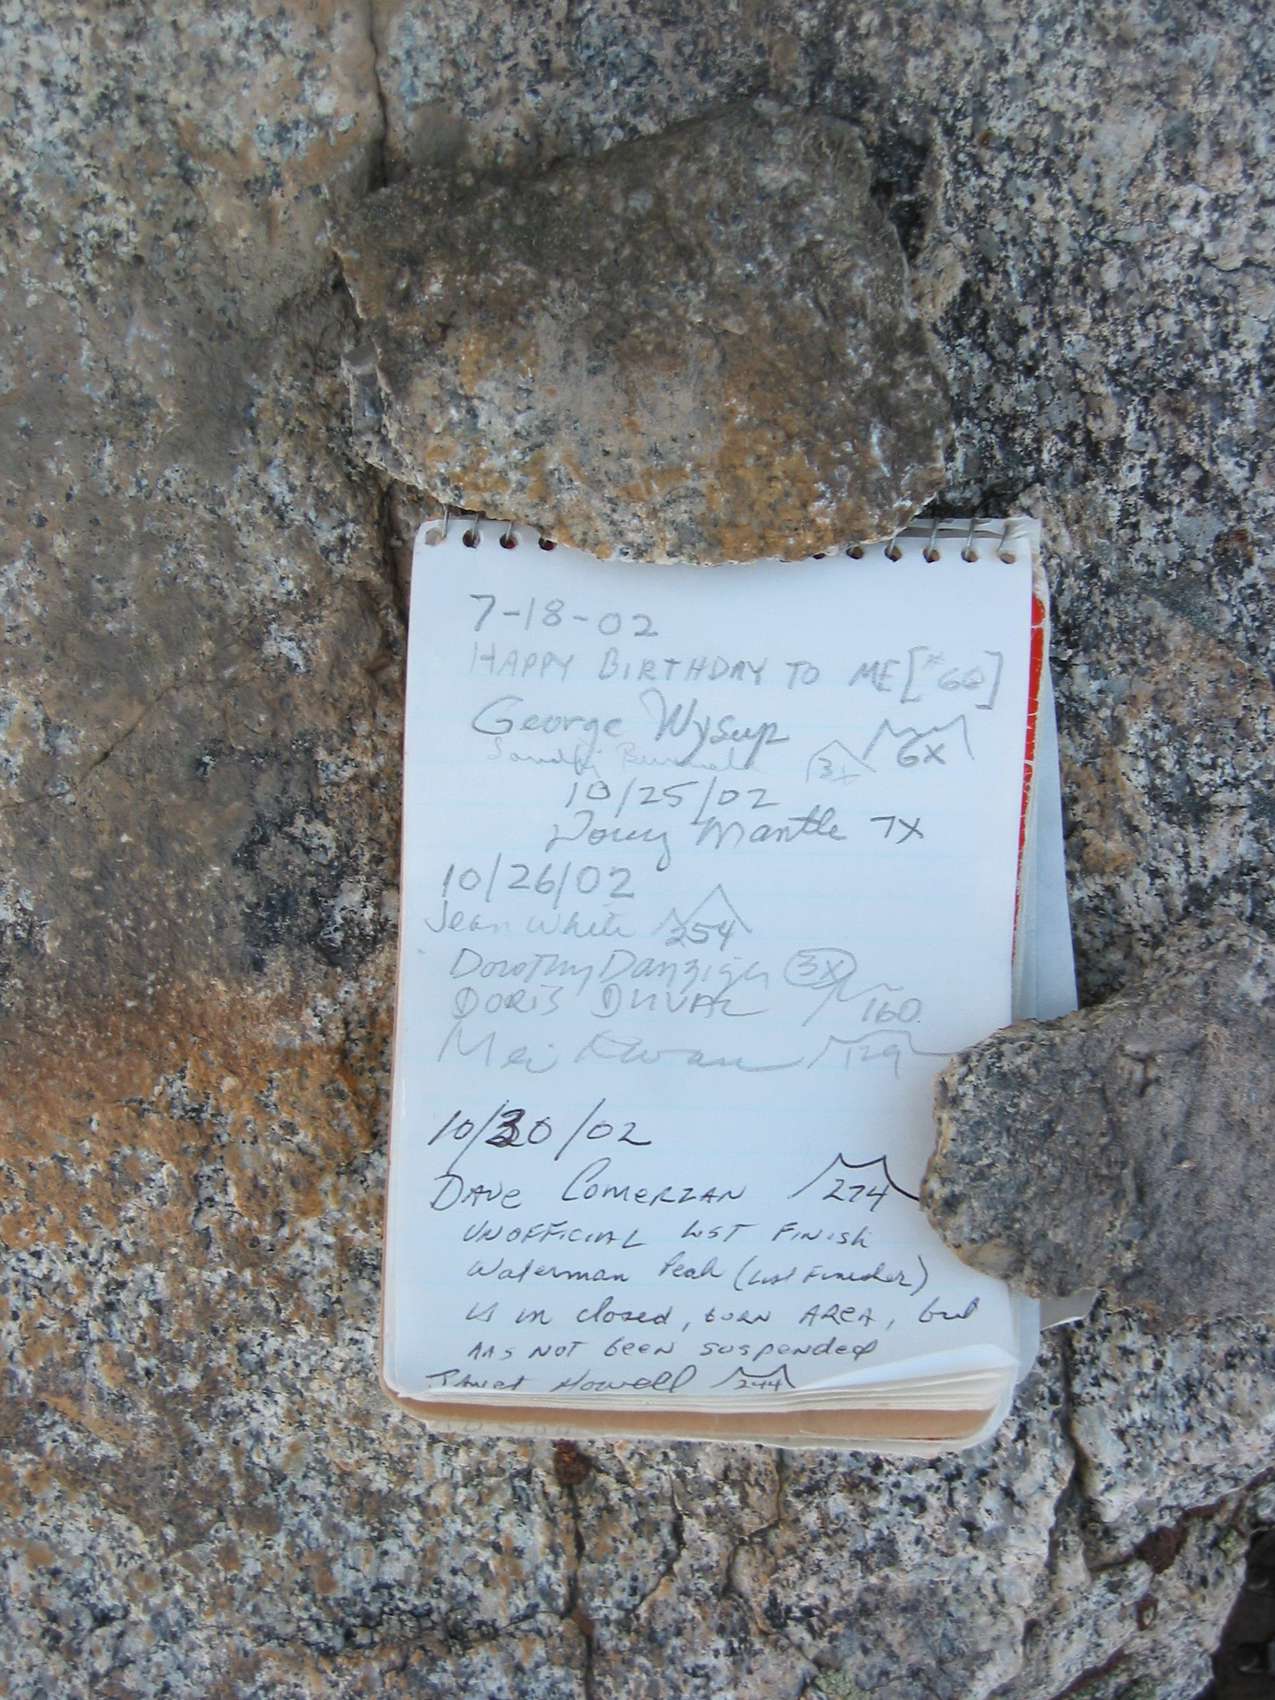 7-18-02
HAPPY BIRTHDAY TO ME [#60]
George Wysup 6X
3x
10/25/02
Doug Mantle 7X
10/26/02
Jean White 254
Dorothy Danziger 3X
DORIS DUVAL 160
Mei Kwan 129
10/30/02
DAVE COMERZAN 274
UNOFFICIAL LIST FINISH
Waterman Peak (List Finisher)
is in closed, BURN AREA, but
HAS NOT been suspended
JANET Howell 244